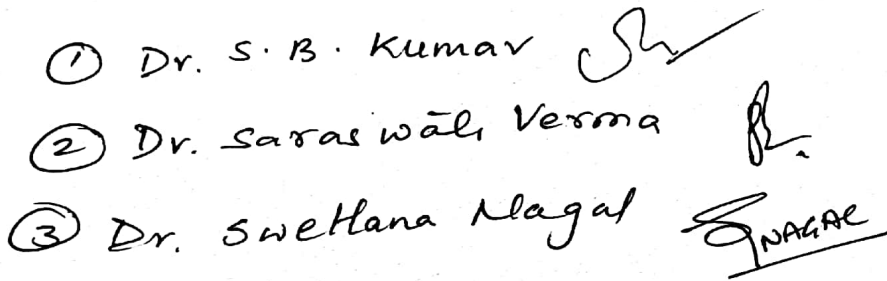 ① Dr. S. B. Kumar
② Dr. Saraswati Verma
③ Dr. Swetlana Nagal SNAGAL